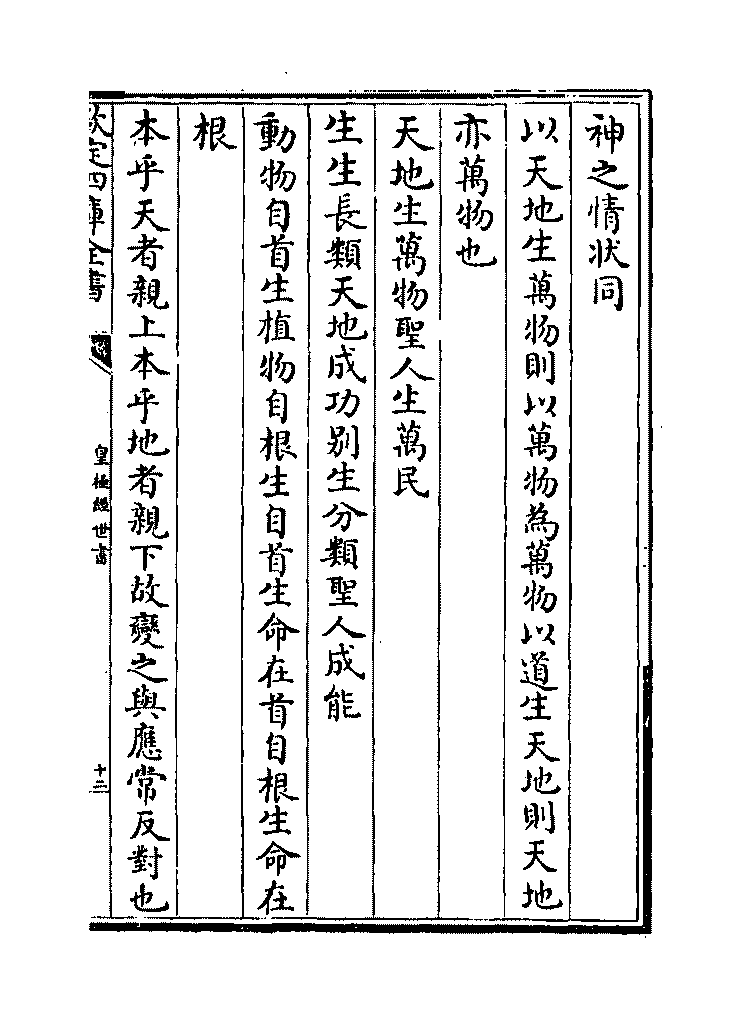 神之情狀同
以天地生萬物則以萬物為萬物以道生天地則天地
亦萬物也
天地生萬物聖人生萬民
生生長類天地成功别生分類聖人成能
動物自首生植物自根生自首生命在首自根生命在
根
本乎天者親上本乎地者親下故變之與應常反對也
欽定四庫全書
皇極經世書
十二